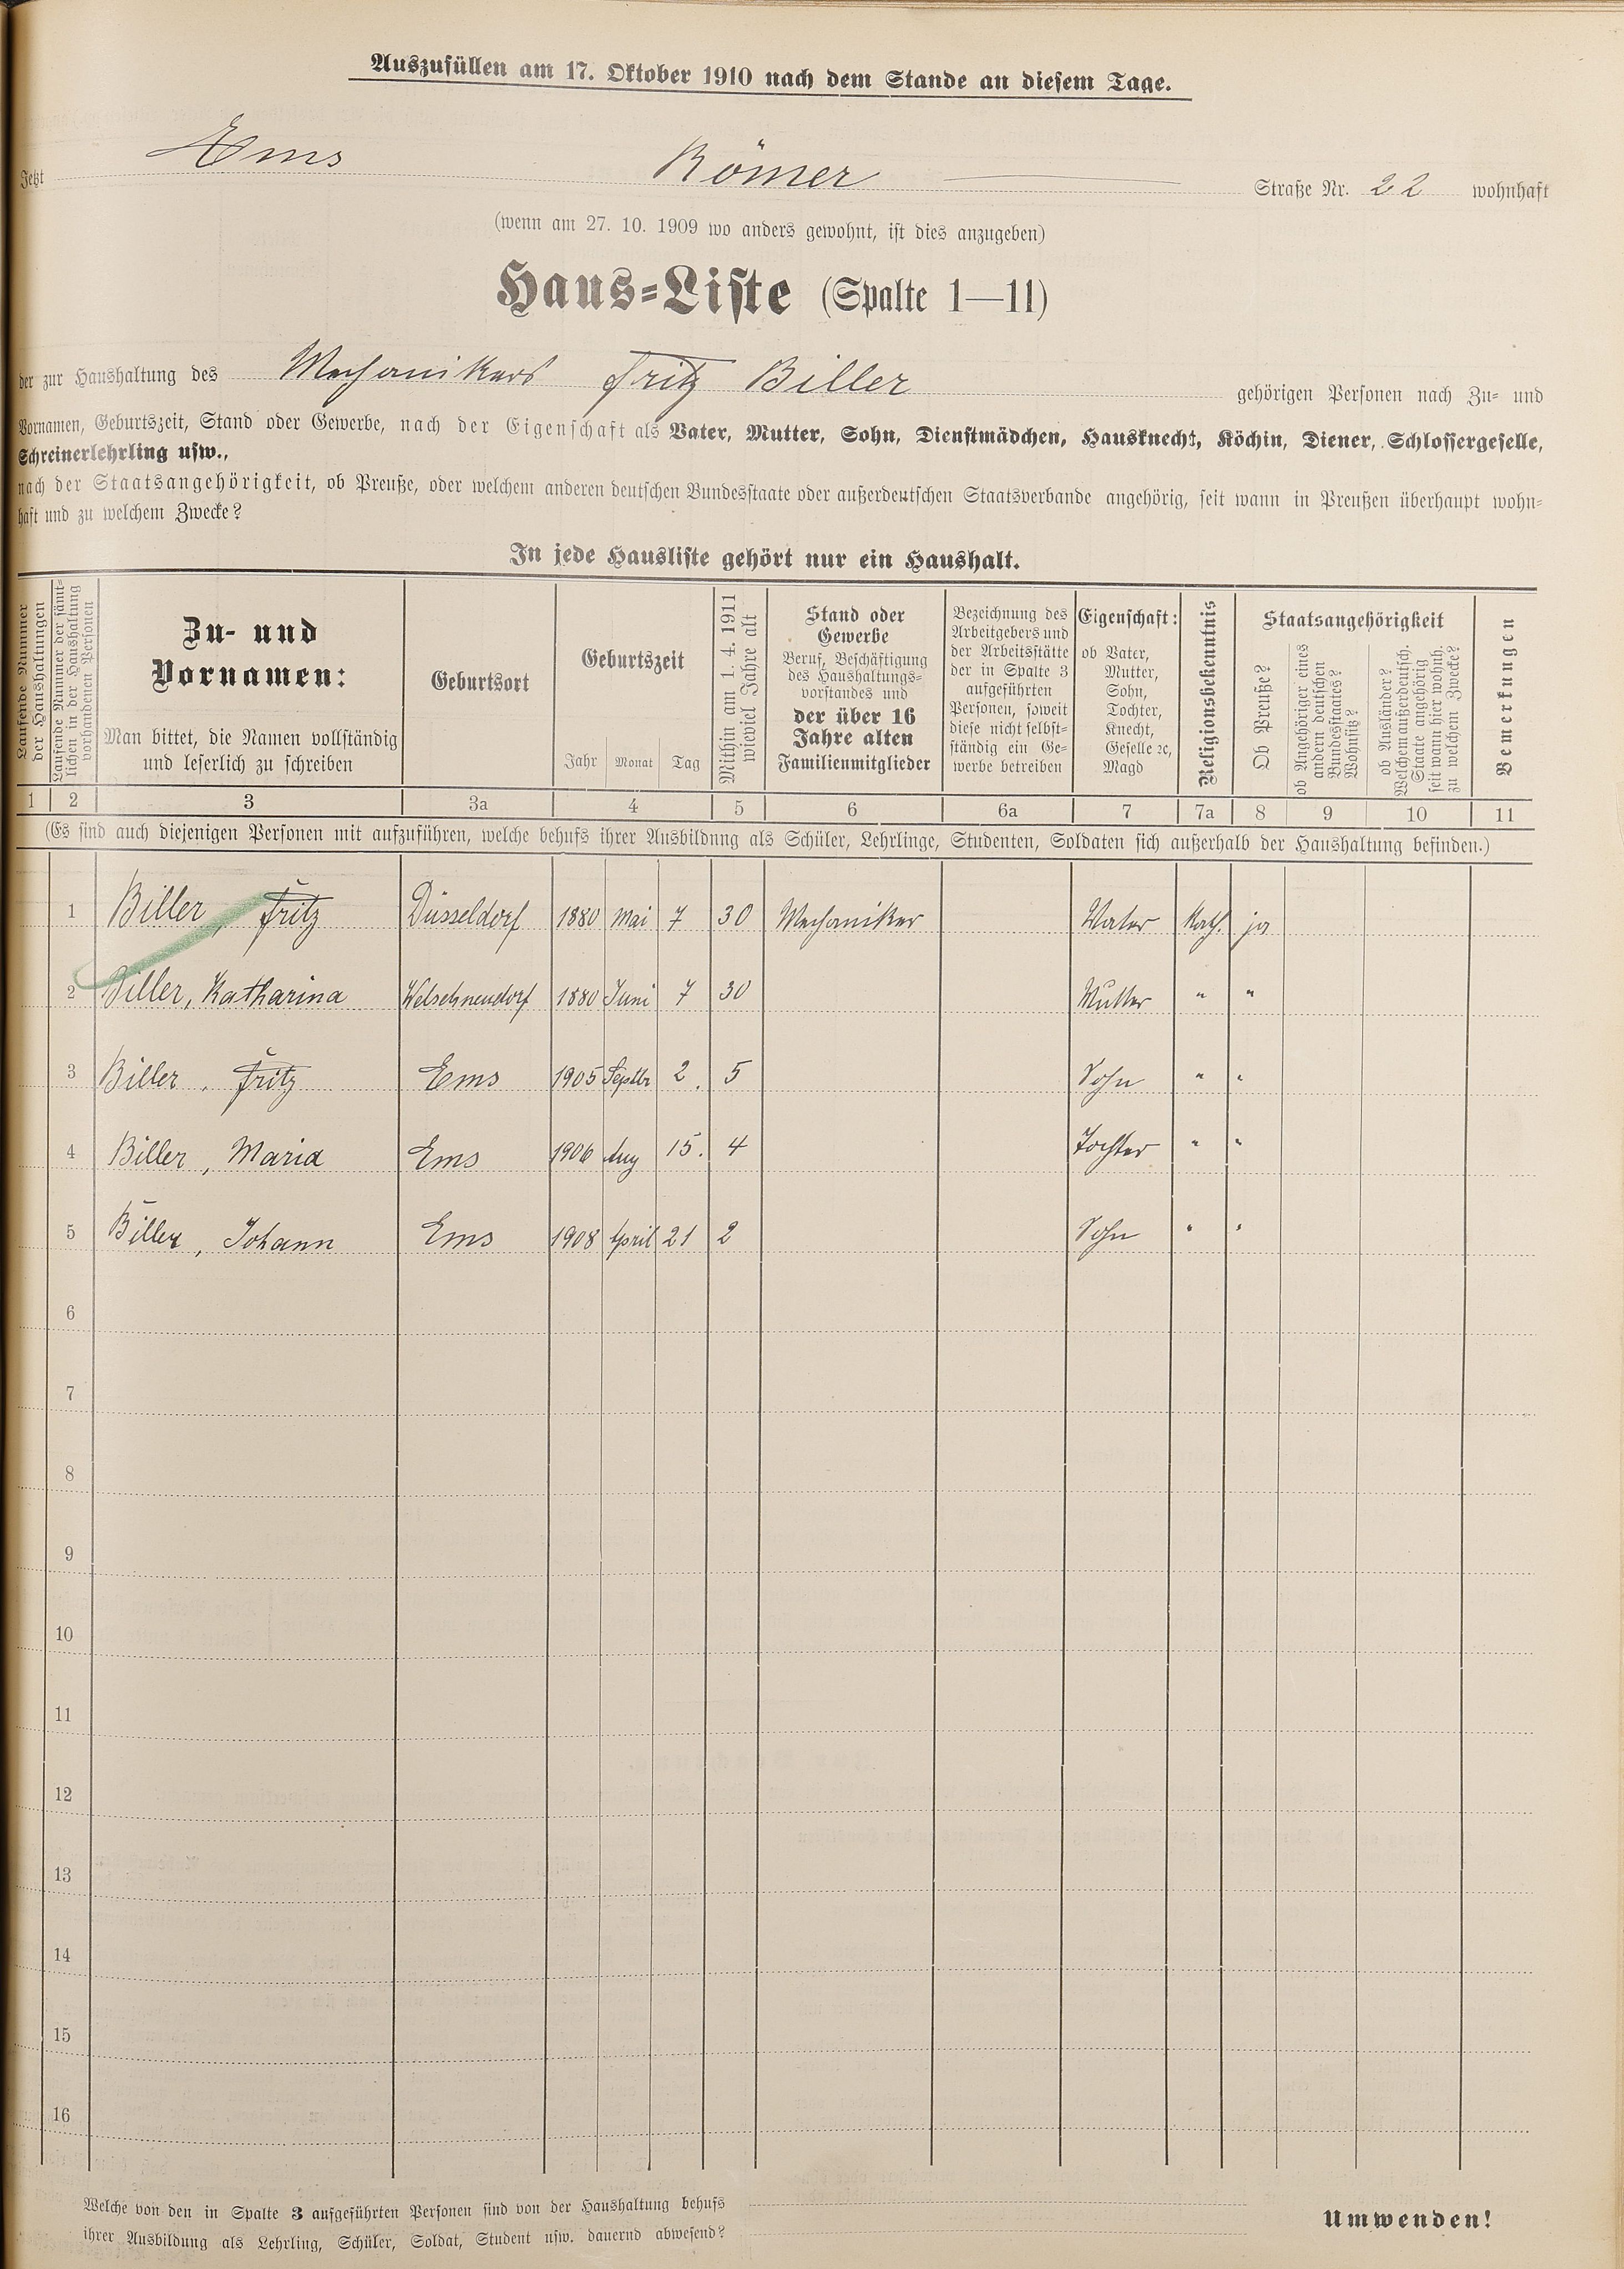 Auszufüllen am 17. Oktober 1910 nach dem Stande an diesem Tage.
Jetzt Ems Römer Straße Nr. 22 wohnhaft
(wenn am 27. 10. 1909 wo anders gewohnt, ist dies anzugeben)
Haus-Liste (Spalte 1—11)
der zur Haushaltung des Mechanikers Fritz Biller gehörigen Personen nach Zu- und
Vornamen, Geburtszeit, Stand oder Gewerbe, nach der Eigenschaft als Vater, Mutter, Sohn, Dienstmädchen, Hausknecht, Köchin, Diener, Schlossergeselle,
Schreinerlehrling usw.,
nach der Staatsangehörigkeit, ob Preuße, oder welchem anderen deutschen Bundesstaate oder außerdeutschen Staatsverbande angehörig, seit wann in Preußen überhaupt wohn-
haft und zu welchem Zwecke?
In jede Hausliste gehört nur ein Haushalt.
Laufende Nummer
der Haushaltungen
Laufende Nummer der sämt-
lichen in der Haushaltung
vorhandenen Personen
Zu- und
Vornamen:
Man bittet, die Namen vollständig
und leserlich zu schreiben
Geburtsort
Geburtszeit
Jahr Monat Tag
Mithin am 1. 4. 1911
wieviel Jahre alt
Stand oder
Gewerbe
Beruf, Beschäftigung
des Haushaltungs-
vorstandes und
der über 16
Jahre alten
Familienmitglieder
Bezeichnung des
Arbeitgebers und
der Arbeitsstätte
der in Spalte 3
aufgeführten
Personen, soweit
diese nicht selbst-
ständig ein Ge-
werbe betreiben
Eigenschaft:
ob Vater,
Mutter,
Sohn,
Tochter,
Knecht,
Geselle ec,
Magd
Religionsbekenntnis
Staatsangehörigkeit
Ob Preuße?
ob Angehöriger eines
andern deutschen
Bundesstaates?
Wohnsitz?
ob Ausländer?
Welchem außerdeutsch.
Staate angehörig
seit wann hier wohnh.
zu welchem Zwecke?
Bemerkungen
1 2 3 3a 4 5 6 6a 7 7a 8 9 10 11
(Es sind auch diejenigen Personen mit aufzuführen, welche behufs ihrer Ausbildung als Schüler, Lehrlinge, Studenten, Soldaten sich außerhalb der Haushaltung befinden.)
1 Biller, Fritz Düsseldorf 1880 Mai 7 30 Mechaniker Vater Kath. ja
2 Biller, Katharina Welschneudorf 1880 Juni 7 30 Mutter " "
3 Biller, Fritz Ems 1905 Septbr 2. 5 Sohn " "
4 Biller, Maria Ems 1906 Aug 15. 4 Tochter " "
5 Biller, Johann Ems 1908 April 21 2 Sohn " "
6
7
8
9
10
11
12
13
14
15
16
Welche von den in Spalte 3 aufgeführten Personen sind von der Haushaltung behufs
ihrer Ausbildung als Lehrling, Schüler, Soldat, Student usw. dauernd abwesend?
Umwenden!